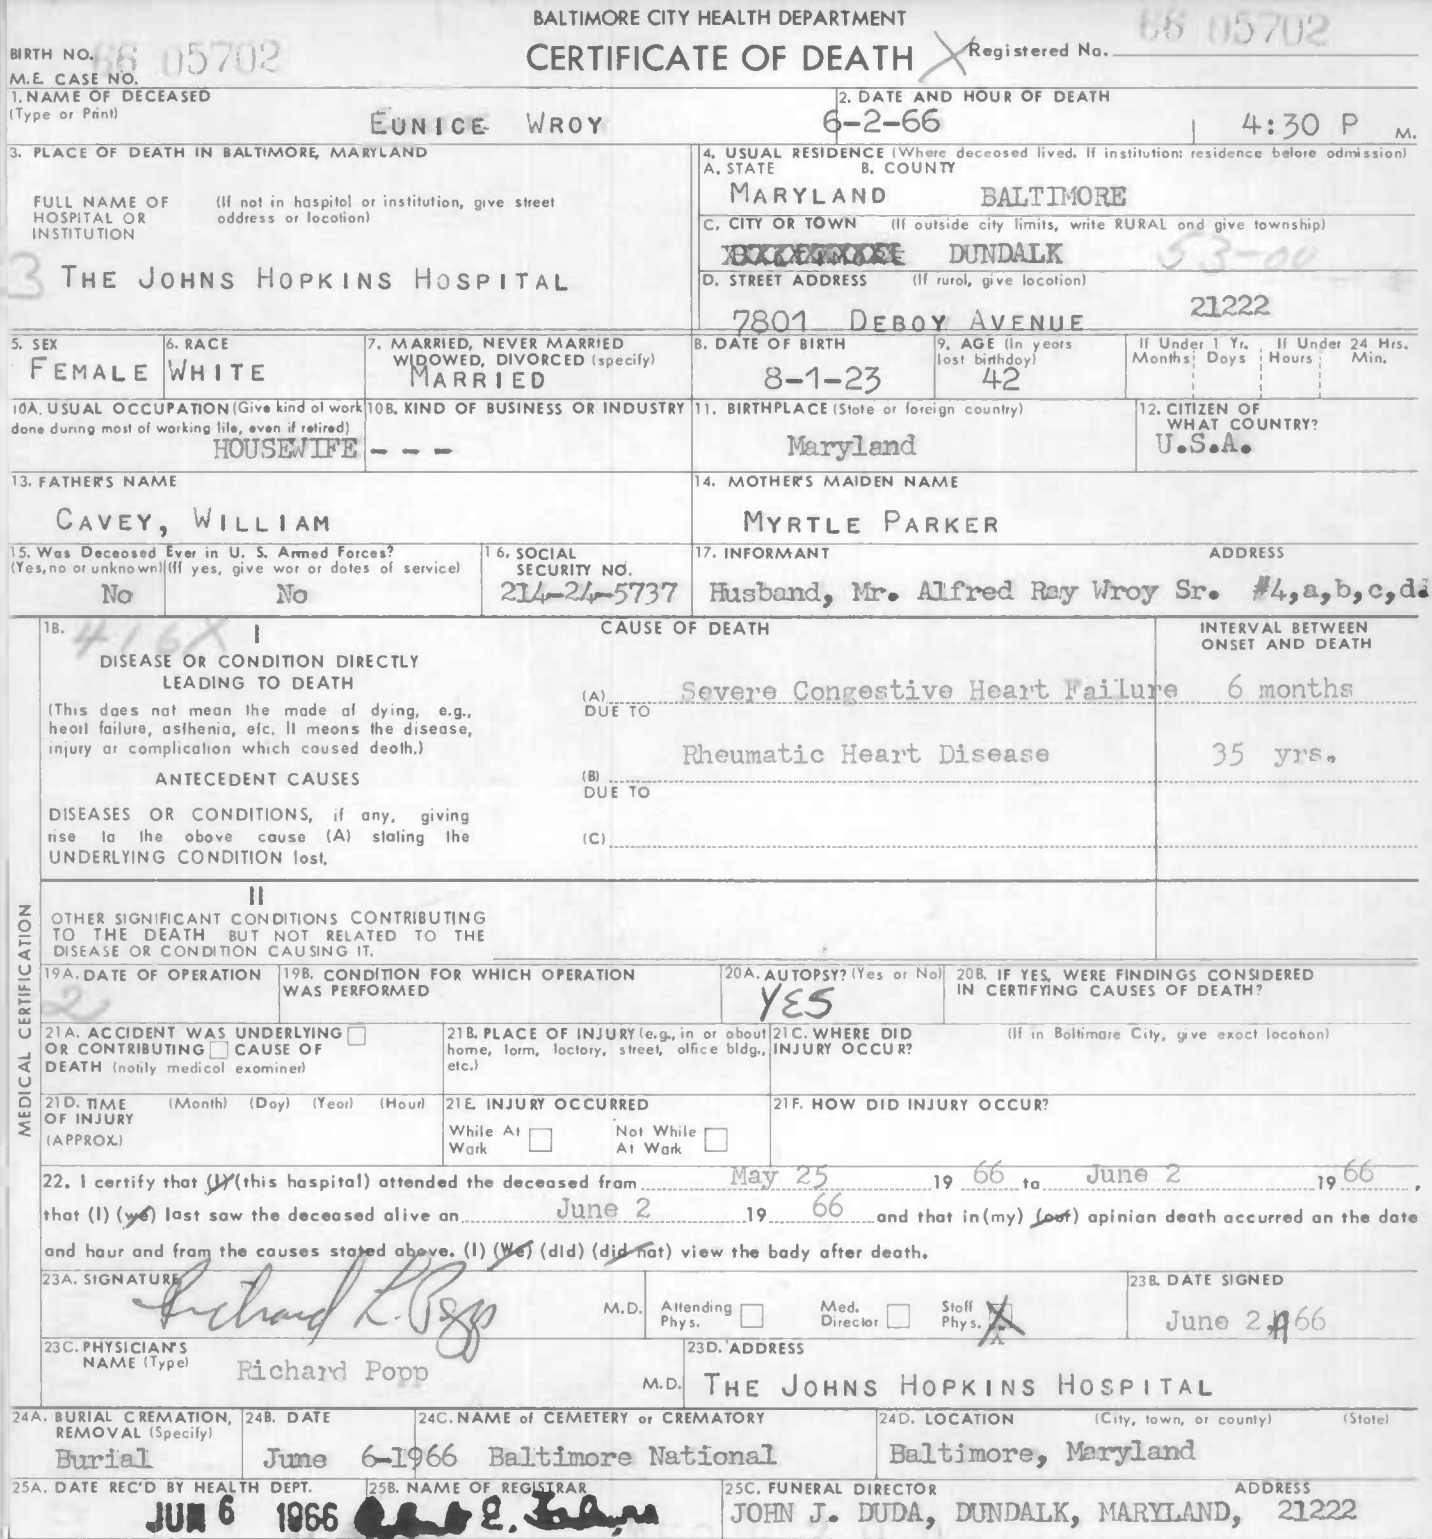 BALTIMORE CITY HEALTH DEPARTMENT
CERTIFICATE OF DEATH
BIRTH NO. 66 05702
Registered No. 66 05702
M.E. CASE NO.
1. NAME OF DECEASED
(Type or Print)
EUNICE WROY
2. DATE AND HOUR OF DEATH
6-2-66 4:30 P M.
3. PLACE OF DEATH IN BALTIMORE, MARYLAND
FULL NAME OF HOSPITAL OR INSTITUTION
(If not in hospital or institution, give street address or location)
3
THE JOHNS HOPKINS HOSPITAL
4. USUAL RESIDENCE (Where deceased lived. If institution: residence before admission)
A. STATE B. COUNTY
MARYLAND BALTIMORE
C. CITY OR TOWN (If outside city limits, write RURAL and give township)
DUNDALK 53-00
D. STREET ADDRESS (If rural, give location)
7801 DEBOY AVENUE 21222
5. SEX
FEMALE
6. RACE
WHITE
7. MARRIED, NEVER MARRIED
WIDOWED, DIVORCED (specify)
MARRIED
8. DATE OF BIRTH
8-1-23
9. AGE (In years
last birthday)
42
If Under 1 Yr. If Under 24 Hrs.
Months Days Hours Min.
10A. USUAL OCCUPATION (Give kind of work
done during most of working life, even if retired)
HOUSEWIFE
10B. KIND OF BUSINESS OR INDUSTRY
- - -
11. BIRTHPLACE (State or foreign country)
Maryland
12. CITIZEN OF
WHAT COUNTRY?
U.S.A.
13. FATHER'S NAME
CAVEY, WILLIAM
14. MOTHER'S MAIDEN NAME
MYRTLE PARKER
15. Was Deceased Ever in U. S. Armed Forces?
(Yes, no or unknown) (If yes, give war or dates of service)
No No
16. SOCIAL
SECURITY NO.
214-24-5737
17. INFORMANT ADDRESS
Husband, Mr. Alfred Ray Wroy Sr. #4,a,b,c,d.
MEDICAL CERTIFICATION
18. 416X
I
DISEASE OR CONDITION DIRECTLY
LEADING TO DEATH
(This does not mean the mode of dying, e.g.,
heart failure, asthenia, etc. It means the disease,
injury or complication which caused death.)
ANTECEDENT CAUSES
DISEASES OR CONDITIONS, if any, giving
rise to the above cause (A) stating the
UNDERLYING CONDITION last.
CAUSE OF DEATH
INTERVAL BETWEEN
ONSET AND DEATH
(A) Severe Congestive Heart Failure 6 months
DUE TO
Rheumatic Heart Disease 35 yrs.
(B)
DUE TO
(C)
II
OTHER SIGNIFICANT CONDITIONS CONTRIBUTING
TO THE DEATH BUT NOT RELATED TO THE
DISEASE OR CONDITION CAUSING IT.
19A. DATE OF OPERATION
2
19B. CONDITION FOR WHICH OPERATION
WAS PERFORMED
20A. AUTOPSY? (Yes or No)
YES
20B. IF YES, WERE FINDINGS CONSIDERED
IN CERTIFYING CAUSES OF DEATH?
21A. ACCIDENT WAS UNDERLYING
OR CONTRIBUTING CAUSE OF
DEATH (notify medical examiner)
21B. PLACE OF INJURY (e.g., in or about
home, farm, factory, street, office bldg.,
etc.)
21C. WHERE DID
INJURY OCCUR?
(If in Baltimore City, give exact location)
21D. TIME (Month) (Day) (Year) (Hour)
OF INJURY
(APPROX.)
21E. INJURY OCCURRED
While At Work Not While At Work
21F. HOW DID INJURY OCCUR?
22. I certify that (I) (this hospital) attended the deceased from May 25 19 66 to June 2 19 66,
that (I) (we) last saw the deceased alive on June 2 19 66 and that in (my) (our) opinion death occurred on the date
and hour and from the causes stated above. (I) (We) (did) (did not) view the body after death.
23A. SIGNATURE
Richard L. Popp M.D.
Attending Phys. Med. Director Staff Phys. X
23B. DATE SIGNED
June 2 66
23C. PHYSICIAN'S
NAME (Type)
Richard Popp M.D.
23D. ADDRESS
THE JOHNS HOPKINS HOSPITAL
24A. BURIAL CREMATION,
REMOVAL (Specify)
Burial
24B. DATE
June 6-1966
24C. NAME of CEMETERY or CREMATORY
Baltimore National
24D. LOCATION (City, town, or county) (State)
Baltimore, Maryland
25A. DATE REC'D BY HEALTH DEPT.
JUN 6 1966
25B. NAME OF REGISTRAR
25C. FUNERAL DIRECTOR ADDRESS
JOHN J. DUDA, DUNDALK, MARYLAND, 21222